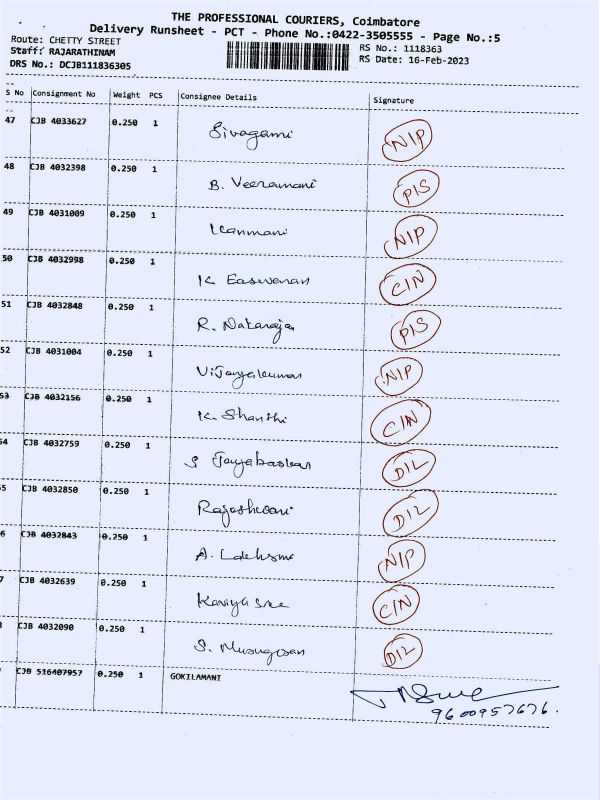 THE PROFESSIONAL COURIERS, Coimbatore
Delivery Runsheet - PCT - Phone No.:0422-3505555 - Page No.:5
Route: CHETTY STREET
RS No.: 1118363
Staff: RAJARATHINAM
RS Date: 16-Feb-2023
DRS No.: DCJB111836305
S No Consignment No Weight PCS Consignee Details Signature
47 CJB 4033627 0.250 1 Sivagami NIP
48 CJB 4032398 0.250 1 B. Veeramani PIS
49 CJB 4031009 0.250 1 Kanmani NIP
50 CJB 4032998 0.250 1 K. Easwaran CIN
51 CJB 4032848 0.250 1 R. Nataraja PIS
52 CJB 4031004 0.250 1 Vijayakumar NIP
53 CJB 4032156 0.250 1 K. Shanthi CIN
54 CJB 4032759 0.250 1 S Jayabaskar DIL
5 CJB 4032850 0.250 1 Rajeshwari DIL
6 CJB 4032843 0.250 1 A. NIP
7 CJB 4032639 0.250 1 Kaviya sree CIN
CJB 4032090 0.250 1 S. Murugesan DIL
CJB 516407957 0.250 1 GOKILAMANI
9600957676.